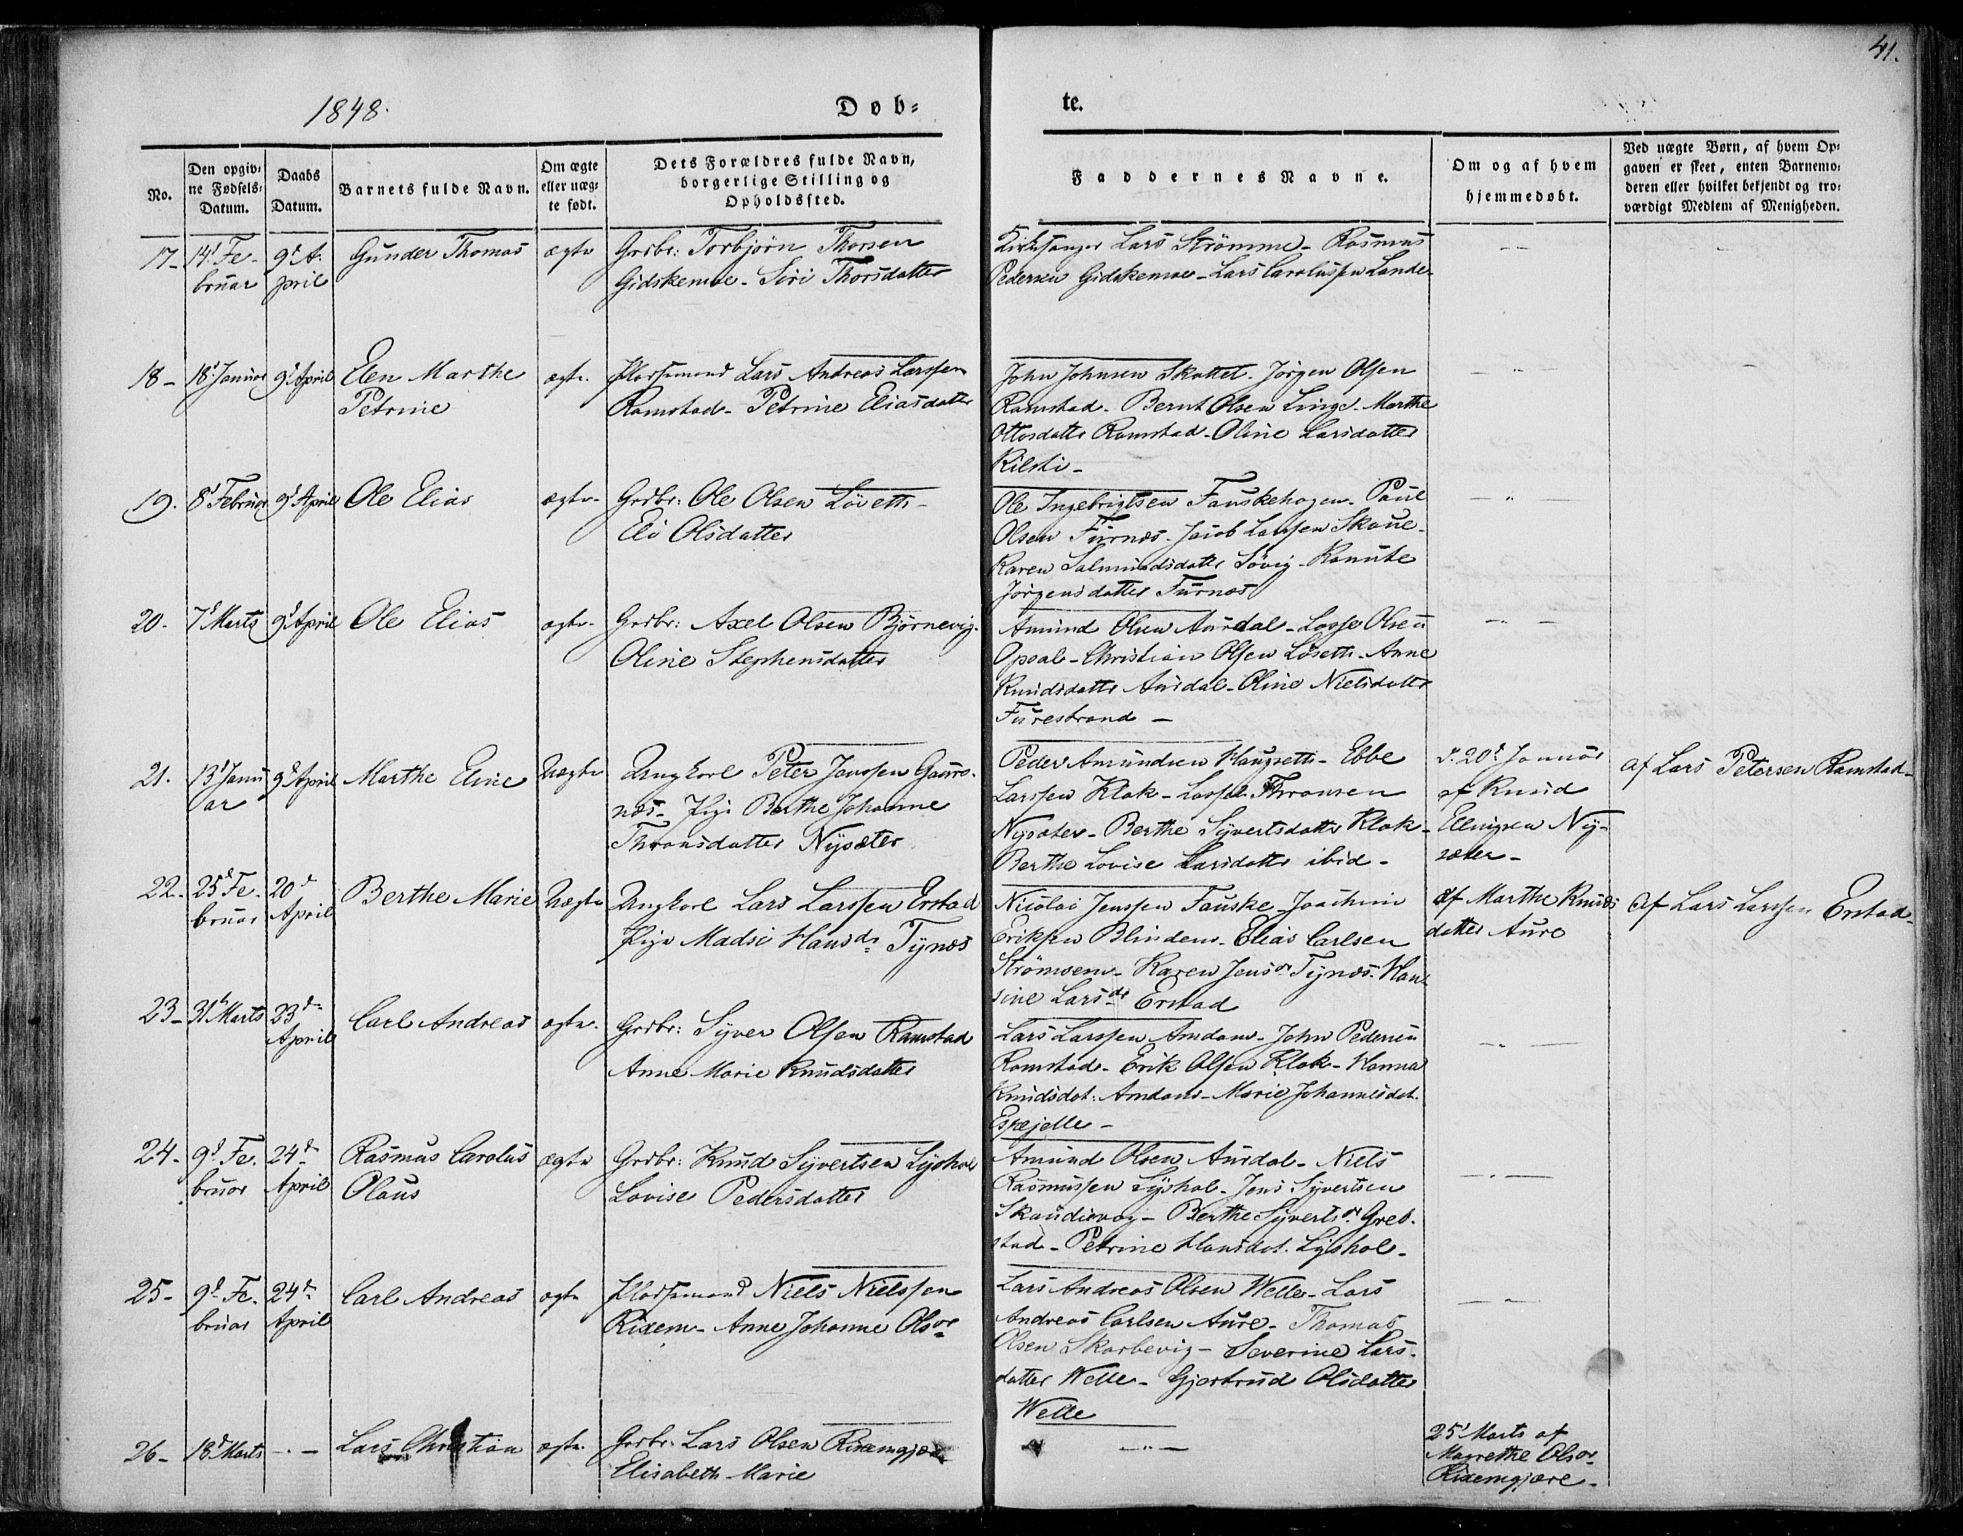 1848.
Døb=
te.
41.
No.
Den opgiv=
ne Fødsels=
Datum.
Daabs
Datum.
Barnets fulde Navn.
Om ægte
eller uæg=
te født.
Dets Forældres fulde Navn,
borgerlige Stilling og
Opholdssted.
Faddernes Navne.
Om og af hvem
hjemmedøbt.
Ved uægte Børn, af hvem Op=
gaven er skeet, enten Barnemo=
deren eller hvilket bekjendt og tro=
værdigt Medlem af Menigheden.
17-
14d Fe-
bruar
9d A-
pril
Gunder Thomas
ægte
Grdbr: Torbjørn Thorsen
Gidskemoe - Siri Thorsdatter
Kirkesanger Lars Strømme - Rasmus
Pedersen Gidskemoe - Lars Carolussen Lande
18-
18d Januar
9d April
Elen Marthe
Petrine
ægte.
Pladsmand Lars Andreas Larssen
Ramstad - Petrine Eliasdatter
John Johnsen Skottet - Jørgen Olsen
Ramstad - Bernt Olsen Linge - Marthe
Ottosdatter Ramstad - Oline Larsdatter
Kilsti -
19.
8d Februar
9d April
Ole Elias
ægte -
Grdbr: Ole Olsen Løseth -
Eli Olsdatter
Ole Ingebrigtsen Fauskehagen - Paul
Olsen Furnæs - Jacob Larssen Skoue -
Karen Salmundsdatter Søvig - Ranute
Jørgensdatter Furnæs
20-
7d Marts
9d April
Ole Elias
ægte -
Grdbr: Axel Olsen Bjørnevig -
Oline Stephensdatter
Amund Olsen Aursdal - Lasse Olsen
Opsal - Christian Olsen Løseth - Anne
Knudsdatter Aursdal - Oline Nielsdatter
Furestrand -
21.
13d Janu
ar
9d April
Marthe Eline
Uægte
Ungkarl Peter Jenssen Gaurs-
næs - Pige Berthe Johanne
Thronsdatter Nysæter
Peder Amundsen Haugseth - Ebbe
Larssen Klok - Lasse Thronsen
Nysæter - Berthe Syvertsdatter Klok -
Berthe Lovise Larsdatter ibid -
d. 20d Januar
af Knud
Ellingsen Ny-
sæter -
af Lars Petersen Ramstad -
22-
25d Fe-
bruar
20d
April
Berthe Marie
Uægte
Ungkarl Lars Larssen Erstad
Pige Madsi Hansdr Tynæs
Nicolai Jenssen Fauske - Joachim
Eriksen Blindem - Elias Carlsen
Strømsem - Karen Jensdr Tynæs - Han
sine Larsdr Erstad
af Marthe Knuds
datter Aure
af Lars Larssen Erstad -
23-
31te Marts
23d
April
Carl Andreas
ægte.
Grdbr: Syver Olsen Ramstad
Anne Marie Knudsdatter
Lars Larssen Amdam - John Pedersen
Ramstad - Erik Olsen Klok - Hanna
Knudsdot: Amdam - Marie Johannesdot.
Espejelle -
24-
9d Fe-
bruar
24d
April
Rasmus Carolus
Olaus
ægte
Grdbr: Knud Syvertsen Lyshol
Lovise Pedersdatter
Amund Olsen Aursdal - Niels
Rasmussen Lyshol - Jens Syvertsen
Skoudevog - Berthe Syvertsdr Greb-
stad - Petrine Hansdot. Lyshol -
25-
9d Fe-
bruar
24d
April
Carl Andreas
ægte
Pladsmand Niels Nielssen
Rixem - Anne Johanne Olsdr
Lars Andreas Olsen Welle - Lars
Andreas Carlsen Aure - Thomas
Olsen Skorbevig - Severine Lars-
datter Welle - Gjertrud Olsdatter
Welle
26-
18d Marts
Lars Christian
ægte.
Grdbr: Lars Olsen Rixemgjære
Elisabeth Marie
25d Marts af
Magrethe Olsdr
Rixemgjære -